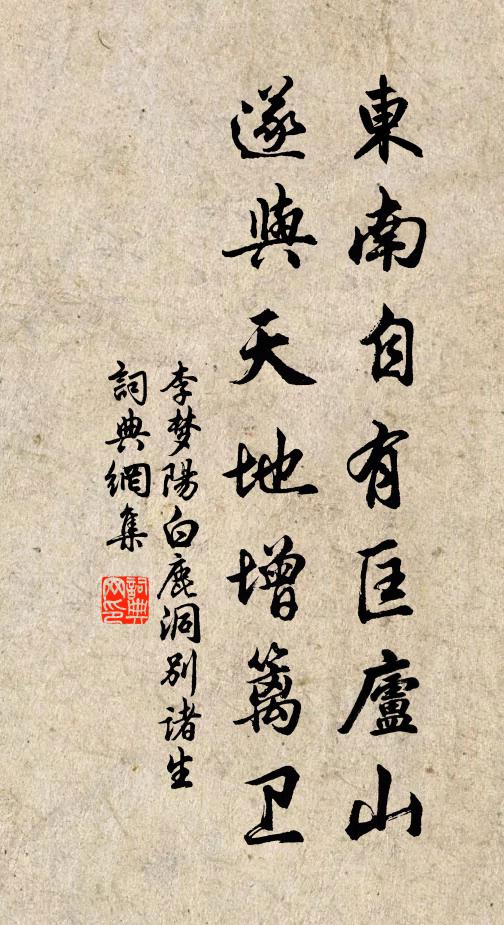 東南自有匡廬山
遂與天地增籬卫
李梦陽白鹿洞别诸生
詞典網集
詞典
网印